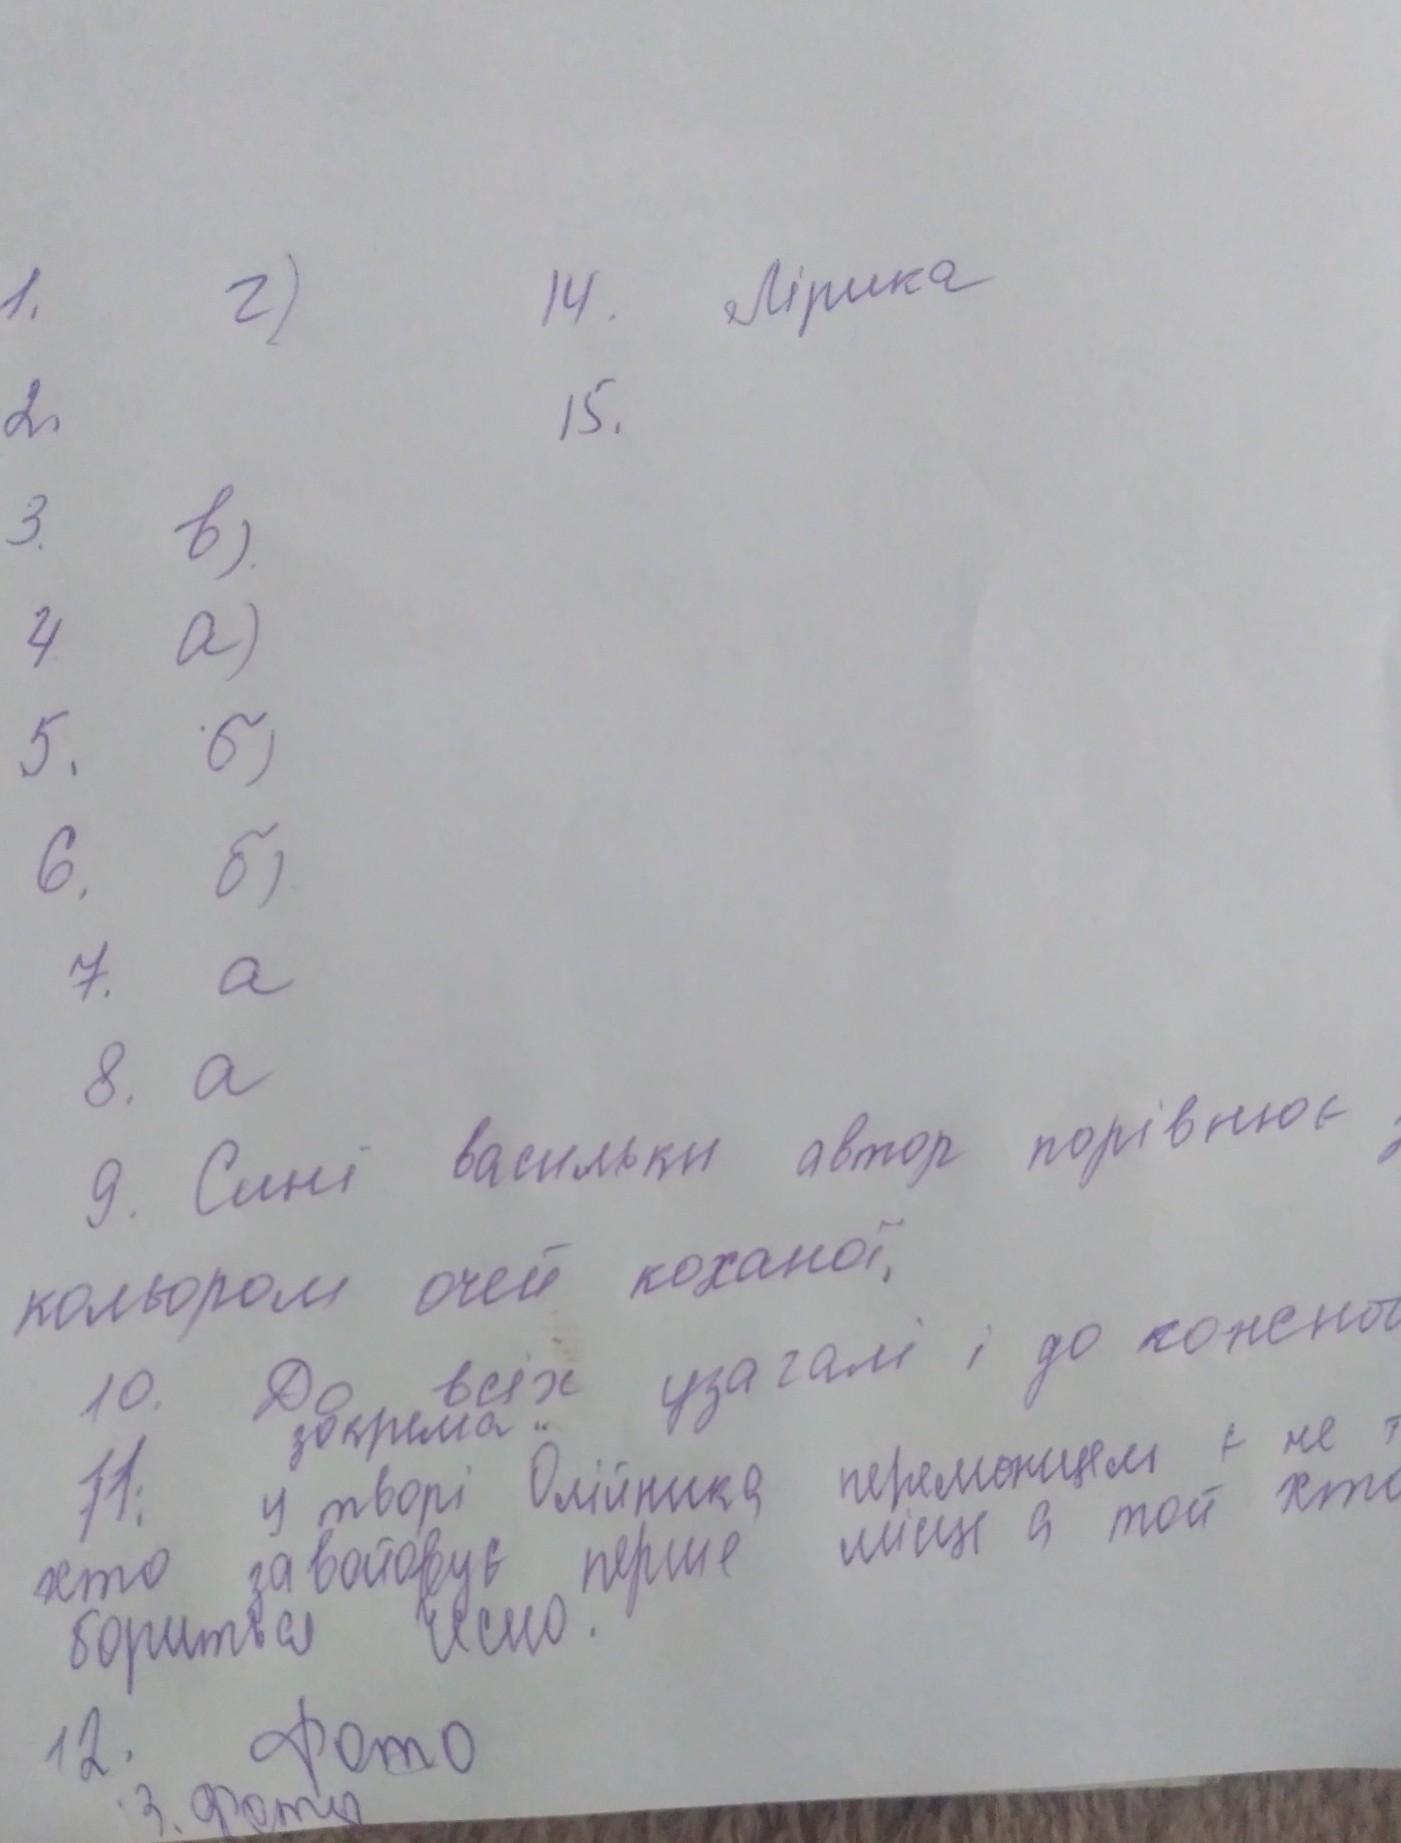 1. г)
2.
3. в)
4 а)
5. б)
6. б)
7. а
8. а
9. Сині васильки автор порівнює з
кольором очей коханої.
10. До всіх узагалі і до кожної
зокрема
11. у творі Олійника переможцем є не т
хто завойовує перше місце а той хто
бориться чесно.
12. Фото
13. Фото
14. Лірика
15.